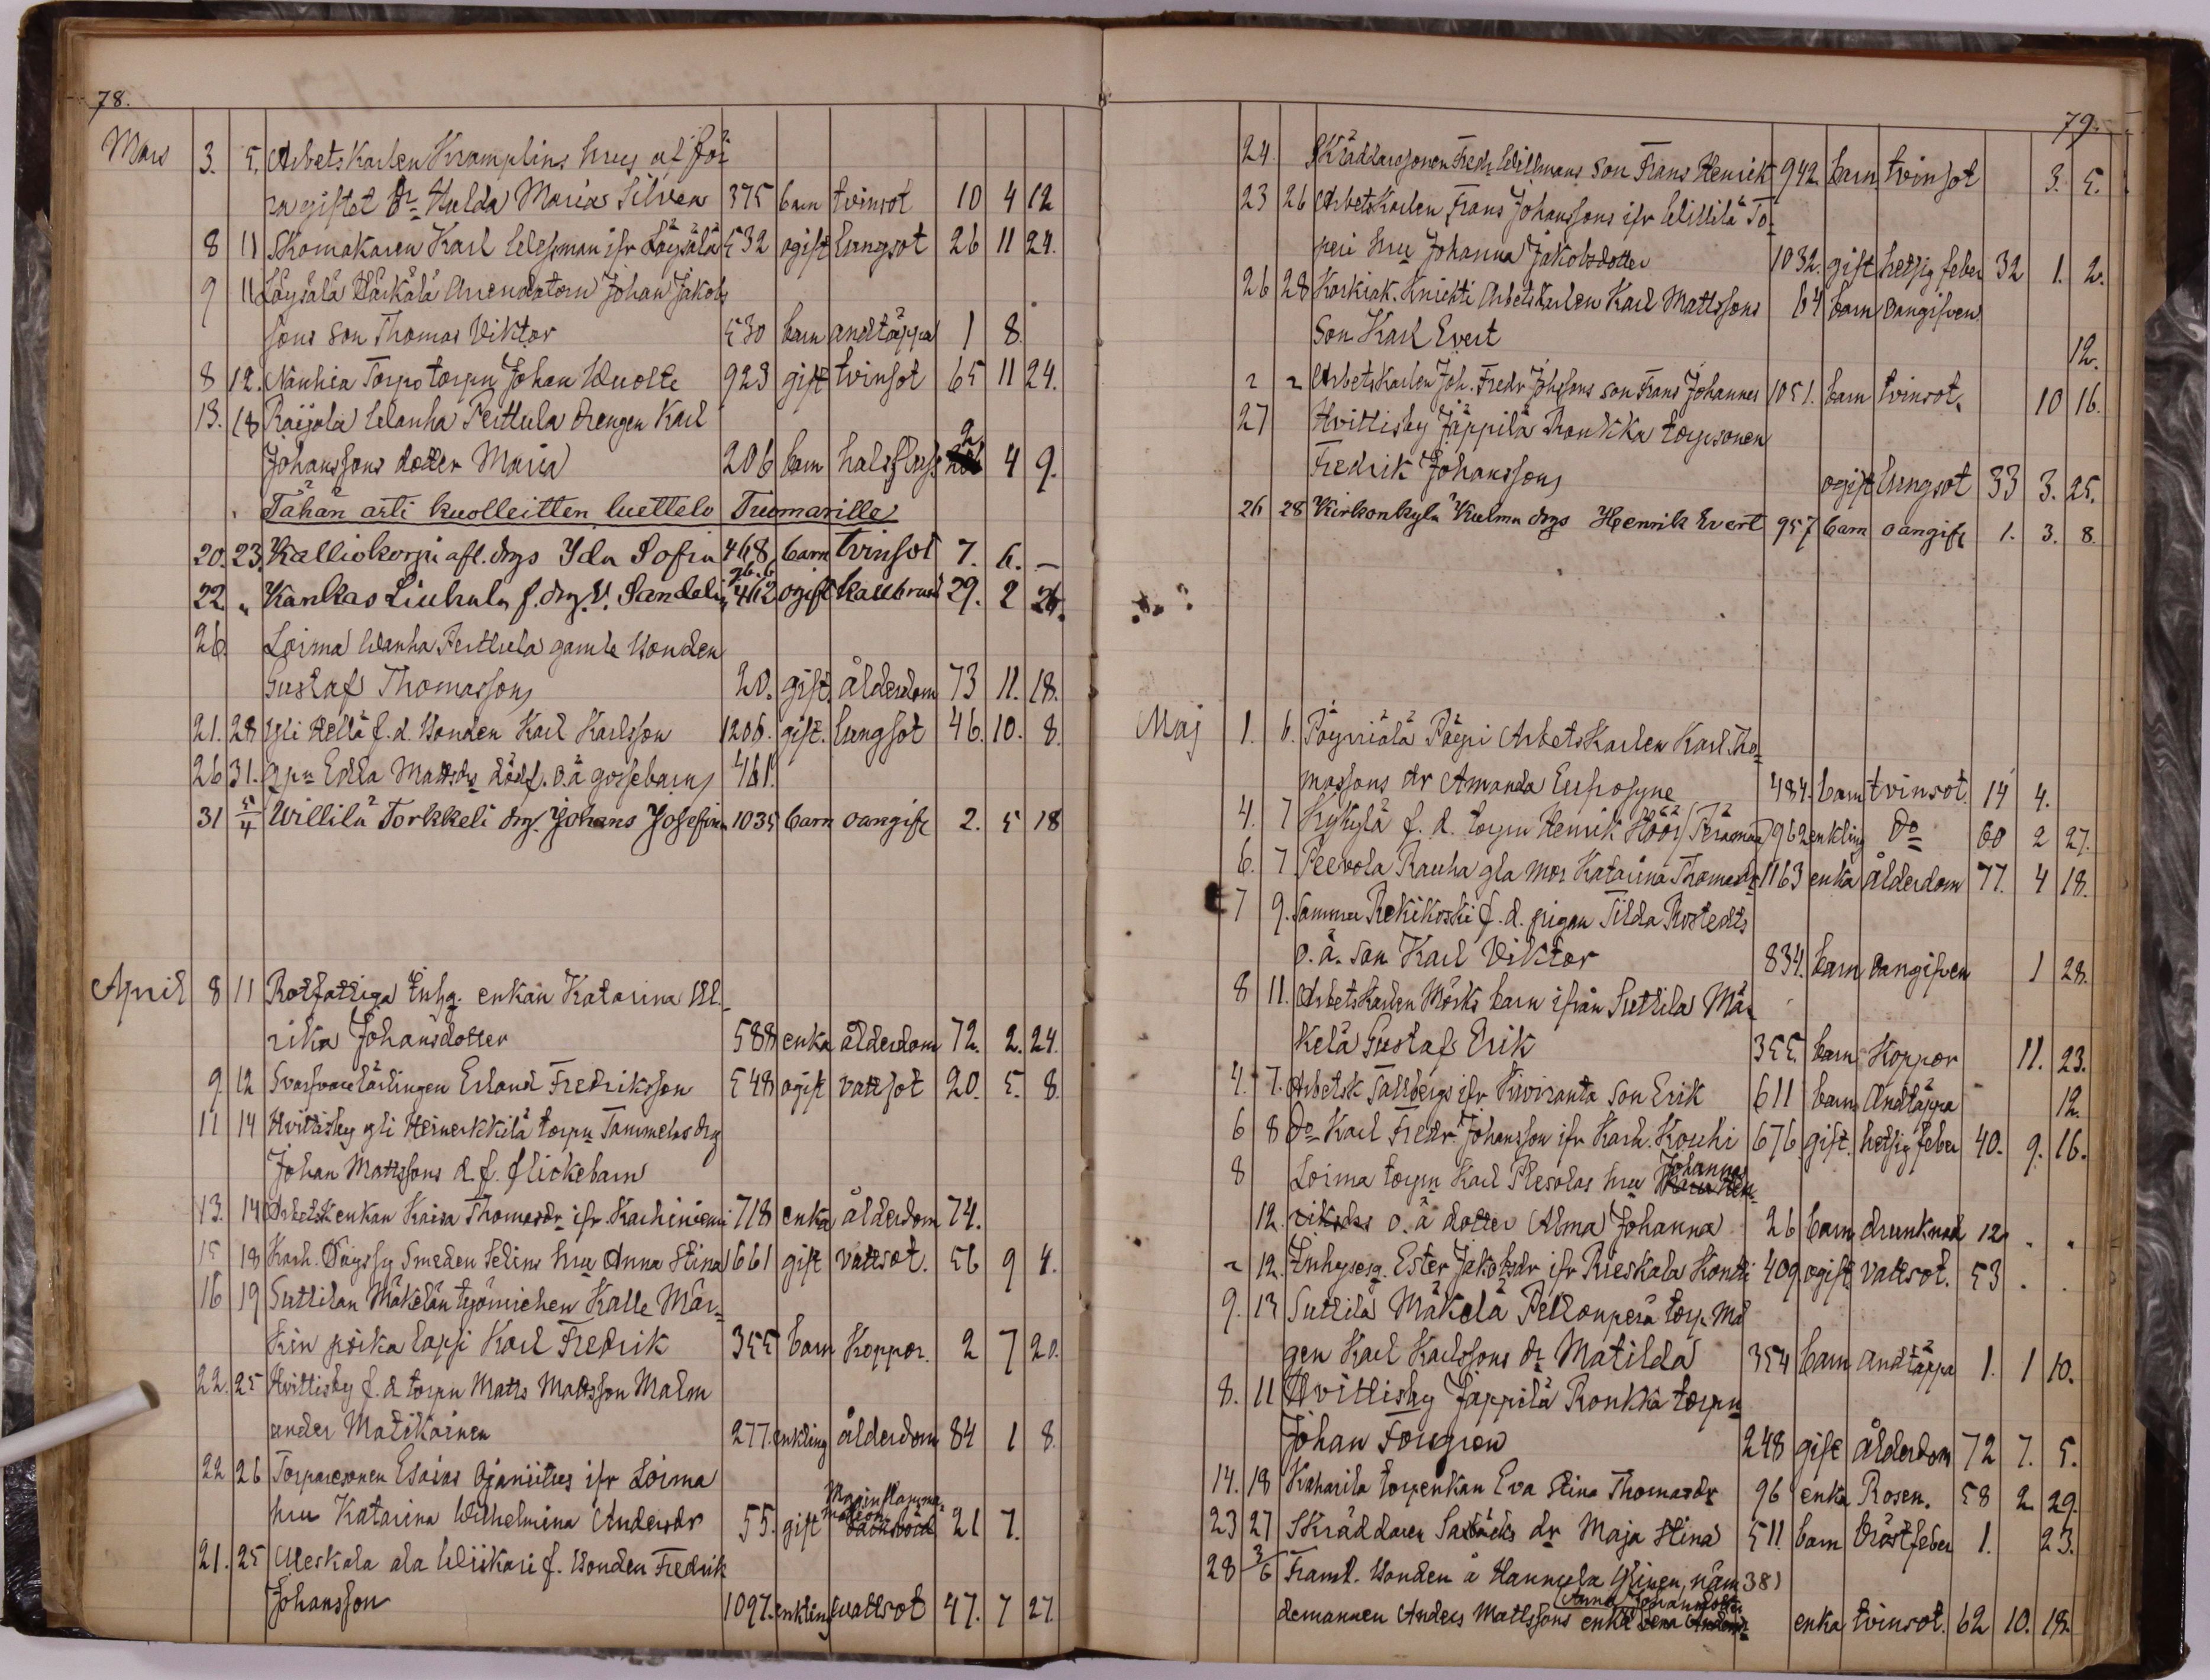 78.
Mars 3. 5. Arbetskarlen Kramplins hrus af för
ra giftet dr Hulda Marias Silven 375 barn tvinsot 10 4 12
8 11 Skomakaren Karl Wessman ifr Löysälä 532 ogift lungsot 26 11 24.
9 11 Löysälä Härkälä Arrendatorn Johan Jakobs
sons son Thomas Viktor 530 barn andtäppa 1 8.
8 12. Nanhia Torpo torpn Johan Wuolte 923 gift tvinsot 65 11 24.
13. 18 Raijala Wanha Perttula drengen Karl
Johanssons dotter Maria 206 barn halsfluss 2 4 9.
Tähän asti kuolleitten luettelo Tuomarille
20. 23. Kalliokorpi afl. drgs Ida Sofia 468 barn tvinsot 7. 6. –
22 „ Kankas Liuhala f. drg. V. Sandelin 462 ogift kallbrand 29. 2 26.
26. Loima Wanha Perttula gamle bonden
Gustaf Thomassons 20. gift. ålderdom 73 11. 18.
21. 28 Yli Hellä f. d. bonden Karl Karlsson 1206. gift. lungsot 46. 10. 8.
26 31. Pgn Edla Mattsdrs dödf. o.ä gossebarn 461.
31 5/4 Willilä Torkkeli drg. Johans Josefina 1035 barn oangift 2. 5 18
April 8 11 Rotfattiga Inhg. enkan Katarina Ul-
rika Johansdotter 588 enka ålderdom 72. 2. 24.
9. 12 Svarfvarelärlingen Erland Fredriksson 548 ogift vattsot 20. 5. 8.
11 14 Hvittisby yli Heinerkkilä torpn Tammelas drg
Johan Mattssons d. f. flickebarn
13. 14 Arbetsk enkan Kaisa Thomasdr ifr. Karhiniemi 718 enka ålderdom 74.
15 18 Karh. Smeden Selins hru Anna Stina 1661 gift vattsot. 56 9 4.
16 19 Suttilan Mäkelän työmiehen Kalle Mör-
kin poika lapsi Karl Fredrik 355 barn Koppor. 2 7 20.
22. 25 Hvittisby f. d. torpn Matts Mattsson Malm
under Matikainen 277. enkling ålderdom 84 1 8.
22 26 Torparesonen Esaias Ojaniitus ifr Loima
hru Katarina Wilhelmina Andersdr 55. gift 21 7.
21. 25 Meskala ala Wiikari f. bonden Fredrik
Johansson 1097. enkling vattsot 47. 7 27.
79.
24. Skräddaresonen Fredr. Willmans son Frans Henrik 942 barn tvinsot 3. 5.
23 26 Arbetskarlen Frans Johanssons ifr Willilä To-
peri hru Johanna Jakobsdotter 1032. gift hetsig feber 32 1. 2.
26 28 Karhiak. Knichti Arbetskarlen Karl Mattssons 64 barn oangifven.
Son Karl Evert 12.
„ „ Arbetskarlen Joh. Fredr Johssons son Frans Johannes 1051. barn tvinsot. 10 16.
27 Hvittisby Jäppilä Ronkka torpsonen
Fredrik Johansson ogift lungsot 33 3. 25.
26 28 Kirkonkylä Kulma drgs Henrik Evert 957 barn oangift 1. 3. 8.
Maj 1. 6. Pöyriälä Pöyri Arbetskarlen Karl Tho-
massons dr Amanda Eufrosyne 484. barn tvinsot. 14 4.
4. 7 Kykylä f. d. torpn Henrik Höör 962 enkling do 60 2 27.
6. 7 Peevola Rauha gla mor Katarina Thomasdr 1163 enka ålderdom 77. 4 18.
7 9. Sammu Rekikoski f. d. pigan Tilda Rostedts
o. ä. son Karl Viktor 834. barn oangifven 1 28.
8 11. Arbetskarlen Mörks barn ifrån Suttila Mä-
kelä Gustaf Erik 355. barn Koppor 11. 23.
4. 7. Arbetsk Tallbergs ifr Kiviranta son Erik 611 barn Andtäppa 12.
6 8 do Karl Fredr. Johansson ifr Karh. Kouhi 676 gift. hetsig feber 40. 9. 16.
8 Loima torpn Karl Plesolas hru Johannas
12. o. ä dotter Alma Johanna 26 barn drunknad 12 . .
„ 12. Inhyseg. Ester Jakobsdr ifr Rieskala Kontti 409 ogift vattsot. 53 . .
9. 13 Suttilä Mäkelä Peltonperä torp. Må
gen Karl Karlssons dr Matilda 354 barn andtäppa 1. 1 10.
8. 11 Hvittisby Jäppilä Ronkka torpn
Johan Forsgren 248 gift ålderdom 72 7. 5.
14. 18 Kaharila torpenkan Eva Stina Thomasdr 96 enka Rosen. 58 2 29.
23 27 Skräddaren Saxbäcks dr Maja Stina 511. barn bröstfeber 1. 23.
28 3/6 Framl. bonden å Hannula Yrinen, näm 381
Anna Johansdotter
demannen Anders Mattssons enka enka tvinsot. 62 10. 18.